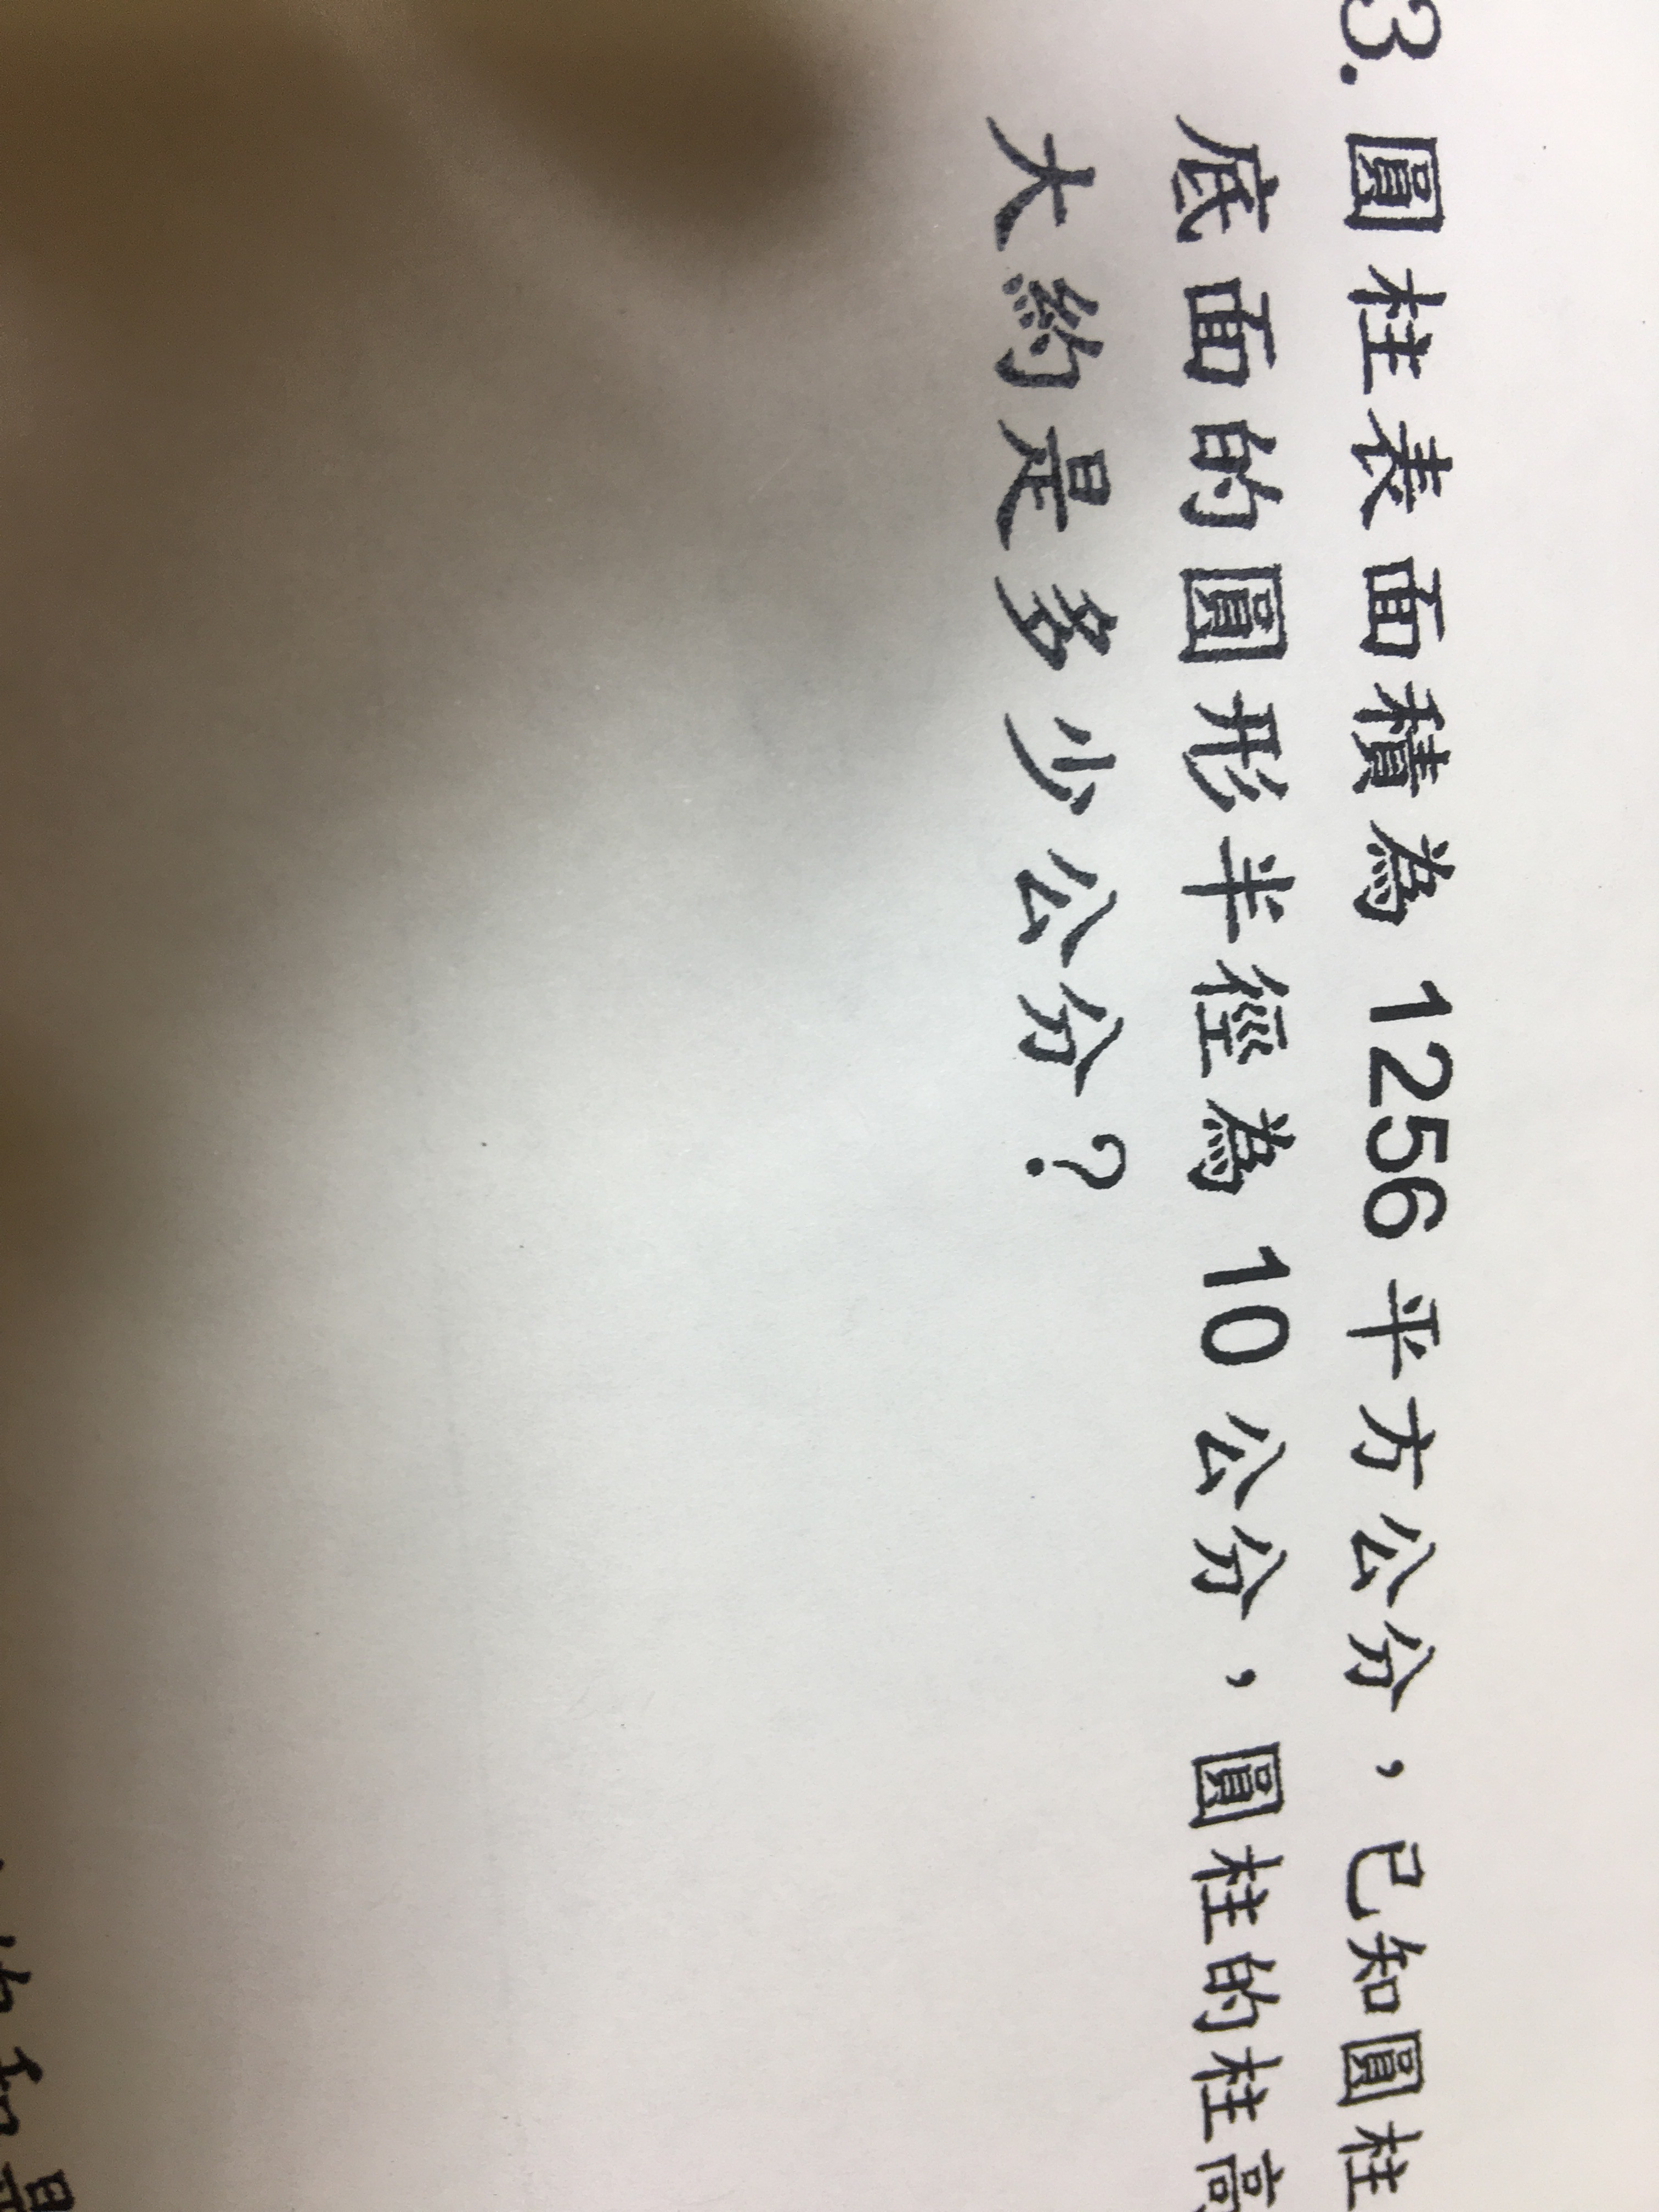 3. 圓柱表面積為 1256 平方公分，已知圓柱
底面的圓形半徑為 10 公分，圓柱的柱高
大約是多少公分？